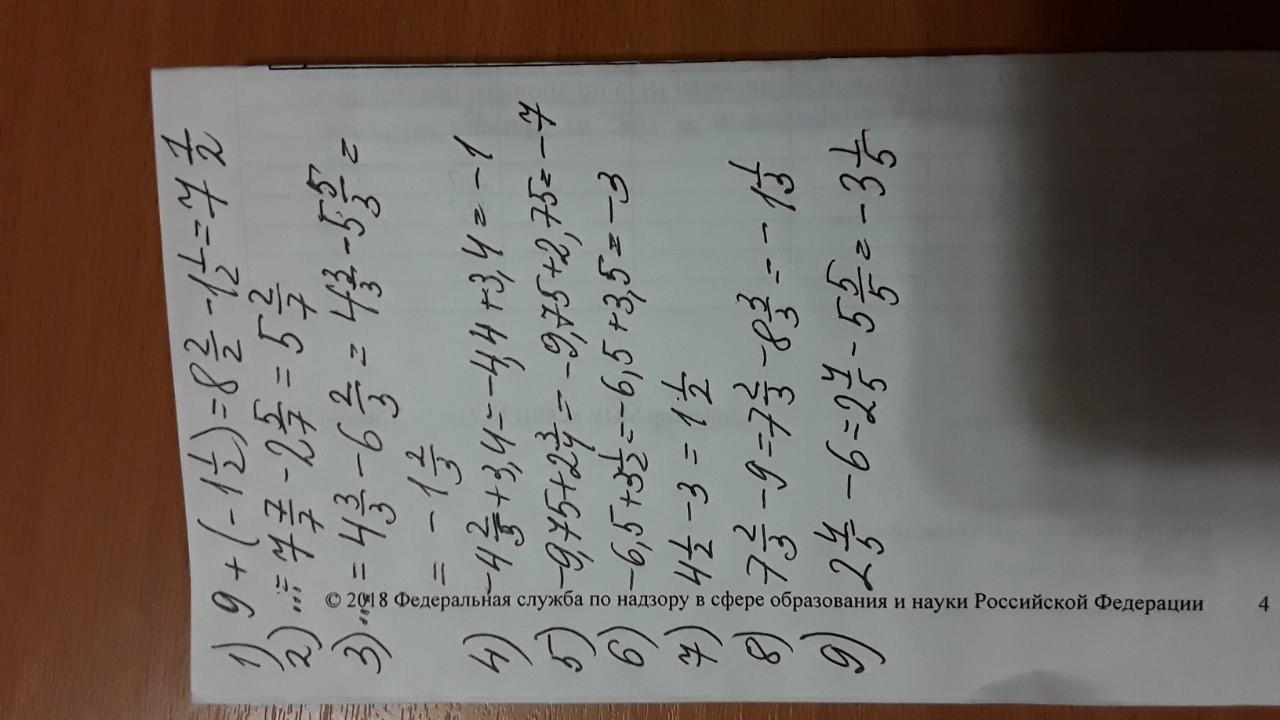 1) 9 + (- 1 1/2) = 8 2/2 - 1 1/2 = 7 1/2
2) ... = 7 7/7 - 2 5/7 = 5 2/7
3) ... = 4 3/3 - 6 2/3 = 4 3/3 - 5 5/3 =
= - 1 2/3
4) -4 2/5 + 3,4 = -4,4 + 3,4 = -1
5) -9,75 + 2 3/4 = -9,75 + 2,75 = -7
6) -6,5 + 3 1/2 = -6,5 + 3,5 = -3
7) 4 1/2 - 3 = 1 1/2
8) 7 2/3 - 9 = 7 2/3 - 8 3/3 = - 1 1/3
9) 2 4/5 - 6 = 2 4/5 - 5 5/5 = - 3 1/5
© 2018 Федеральная служба по надзору в сфере образования и науки Российской Федерации
4